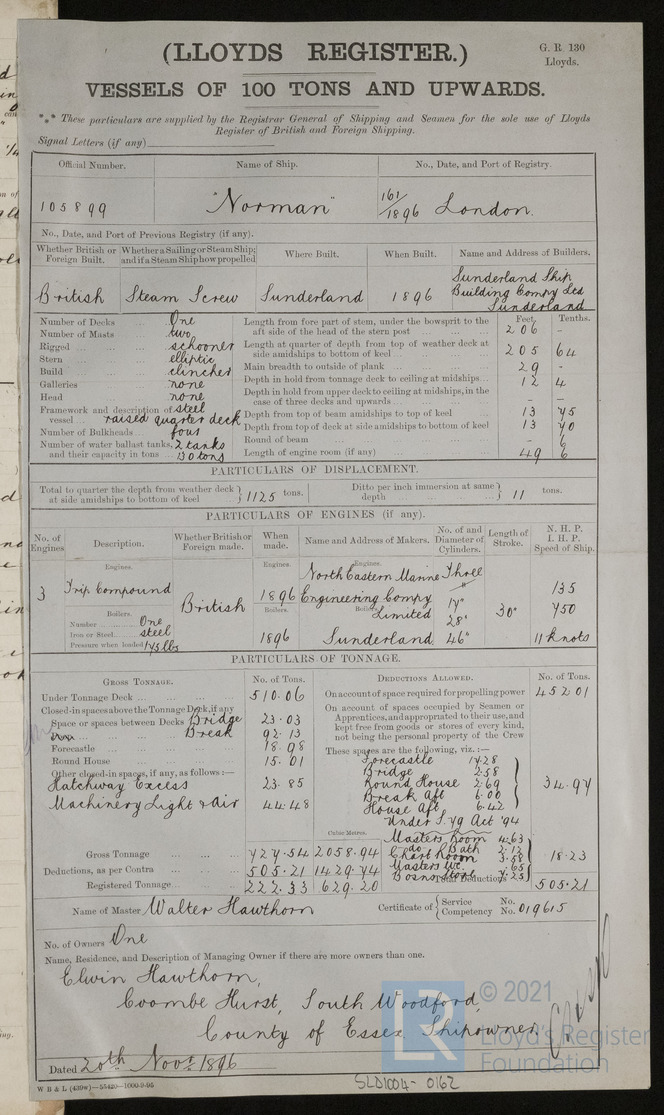 (LLOYDS REGISTER.)
G. R. 130
Lloyds.
VESSELS OF 100 TONS AND UPWARDS.
*** These particulars are supplied by the Registrar General of Shipping and Seamen for the sole use of Lloyds
Register of British and Foreign Shipping.
Signal Letters (if any)
Official Number. Name of Ship. No., Date, and Port of Registry.
105899 "Norman" 161/1896 London.
No., Date, and Port of Previous Registry (if any).
Whether British or Foreign Built. Whether a Sailing or Steam Ship; and if a Steam Ship how propelled Where Built. When Built. Name and Address of Builders.
British Steam Screw Sunderland 1896 Sunderland Ship Building Compy Ltd Sunderland
Number of Decks One
Number of Masts two
Rigged schooner
Stern elliptic
Build clincher
Galleries none
Head none
Framework and description of vessel steel raised quarter deck
Number of Bulkheads four
Number of water ballast tanks, and their capacity in tons 2 tanks 130 tons
Feet. Tenths.
Length from fore part of stem, under the bowsprit to the aft side of the head of the stern post 206 -
Length at quarter of depth from top of weather deck at side amidships to bottom of keel 205 64
Main breadth to outside of plank 29 -
Depth in hold from tonnage deck to ceiling at midships 12 4
Depth in hold from upper deck to ceiling at midships, in the case of three decks and upwards - -
Depth from top of beam amidships to top of keel 13 45
Depth from top of deck at side amidships to bottom of keel 13 40
Round of beam - 6
Length of engine room (if any) 49 6
PARTICULARS OF DISPLACEMENT.
Total to quarter the depth from weather deck at side amidships to bottom of keel 1125 tons. Ditto per inch immersion at same depth 11 tons.
PARTICULARS OF ENGINES (if any).
No. of Engines Description. Whether British or Foreign made. When made. Name and Address of Makers. No. of and Diameter of Cylinders. Length of Stroke. N. H. P. I. H. P. Speed of Ship.
Engines. Engines. Engines.
3 Trip Compound British 1896 North Eastern Marine Engineering Compy Limited Three 17" 28" 46" 30" 135 750 11 knots
Boilers. Boilers. Boilers.
Number One
Iron or Steel steel
Pressure when loaded 175 lbs
1896 Sunderland
PARTICULARS OF TONNAGE.
GROSS TONNAGE. No. of Tons.
Under Tonnage Deck 510.06
Closed-in spaces above the Tonnage Deck, if any
Space or spaces between Decks Bridge 23.03
Break 92.13
Forecastle 18.98
Round House 15.01
Other closed-in spaces, if any, as follows:—
Hatchway Excess 23.85
Machinery Light & Air 44.48
Cubic Metres.
Gross Tonnage 727.54 2058.94
Deductions, as per Contra 505.21 1429.74
Registered Tonnage 222.33 629.20
DEDUCTIONS ALLOWED. No. of Tons.
On account of space required for propelling power 452.01
On account of spaces occupied by Seamen or Apprentices, and appropriated to their use, and kept free from goods or stores of every kind, not being the personal property of the Crew
These spaces are the following, viz.:—
Forecastle 17.28
Bridge 2.58
Round House 2.69
Break Aft 6.00
House Aft, 6.42
34.97
Under S. 79 Act '94
Masters Room 4.63
do Bath 2.12
Chart Room 3.58
Masters WC .65
Bosns Store 7.25
18.23
Total Deductions 505.21
Name of Master Walter Hawthorn
Certificate of Service No.
Competency No. 019615
No. of Owners One
Name, Residence, and Description of Managing Owner if there are more owners than one.
Elwin Hawthorn,
Coombe Hurst, South Woodford,
County of Essex Shipowner
Dated 20th Novr 1896
W B & L (439w)—55420—1000-9-95
SLD1004-0162
LR © 2021
Lloyd's Register
Foundation